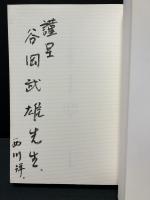 謹呈
谷岡武雄先生、
西川 洋、